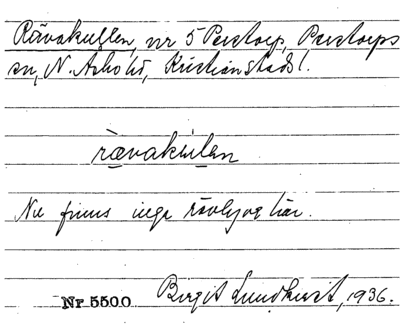 Rävakullen, nr 5 Perstorp, Perstorps
sn, N. Åsbo hd, Kristianstads l.
rävakulen
Nu finns inga rävlyor här.
Nr 5500 Birgit Lundkvist, 1936.